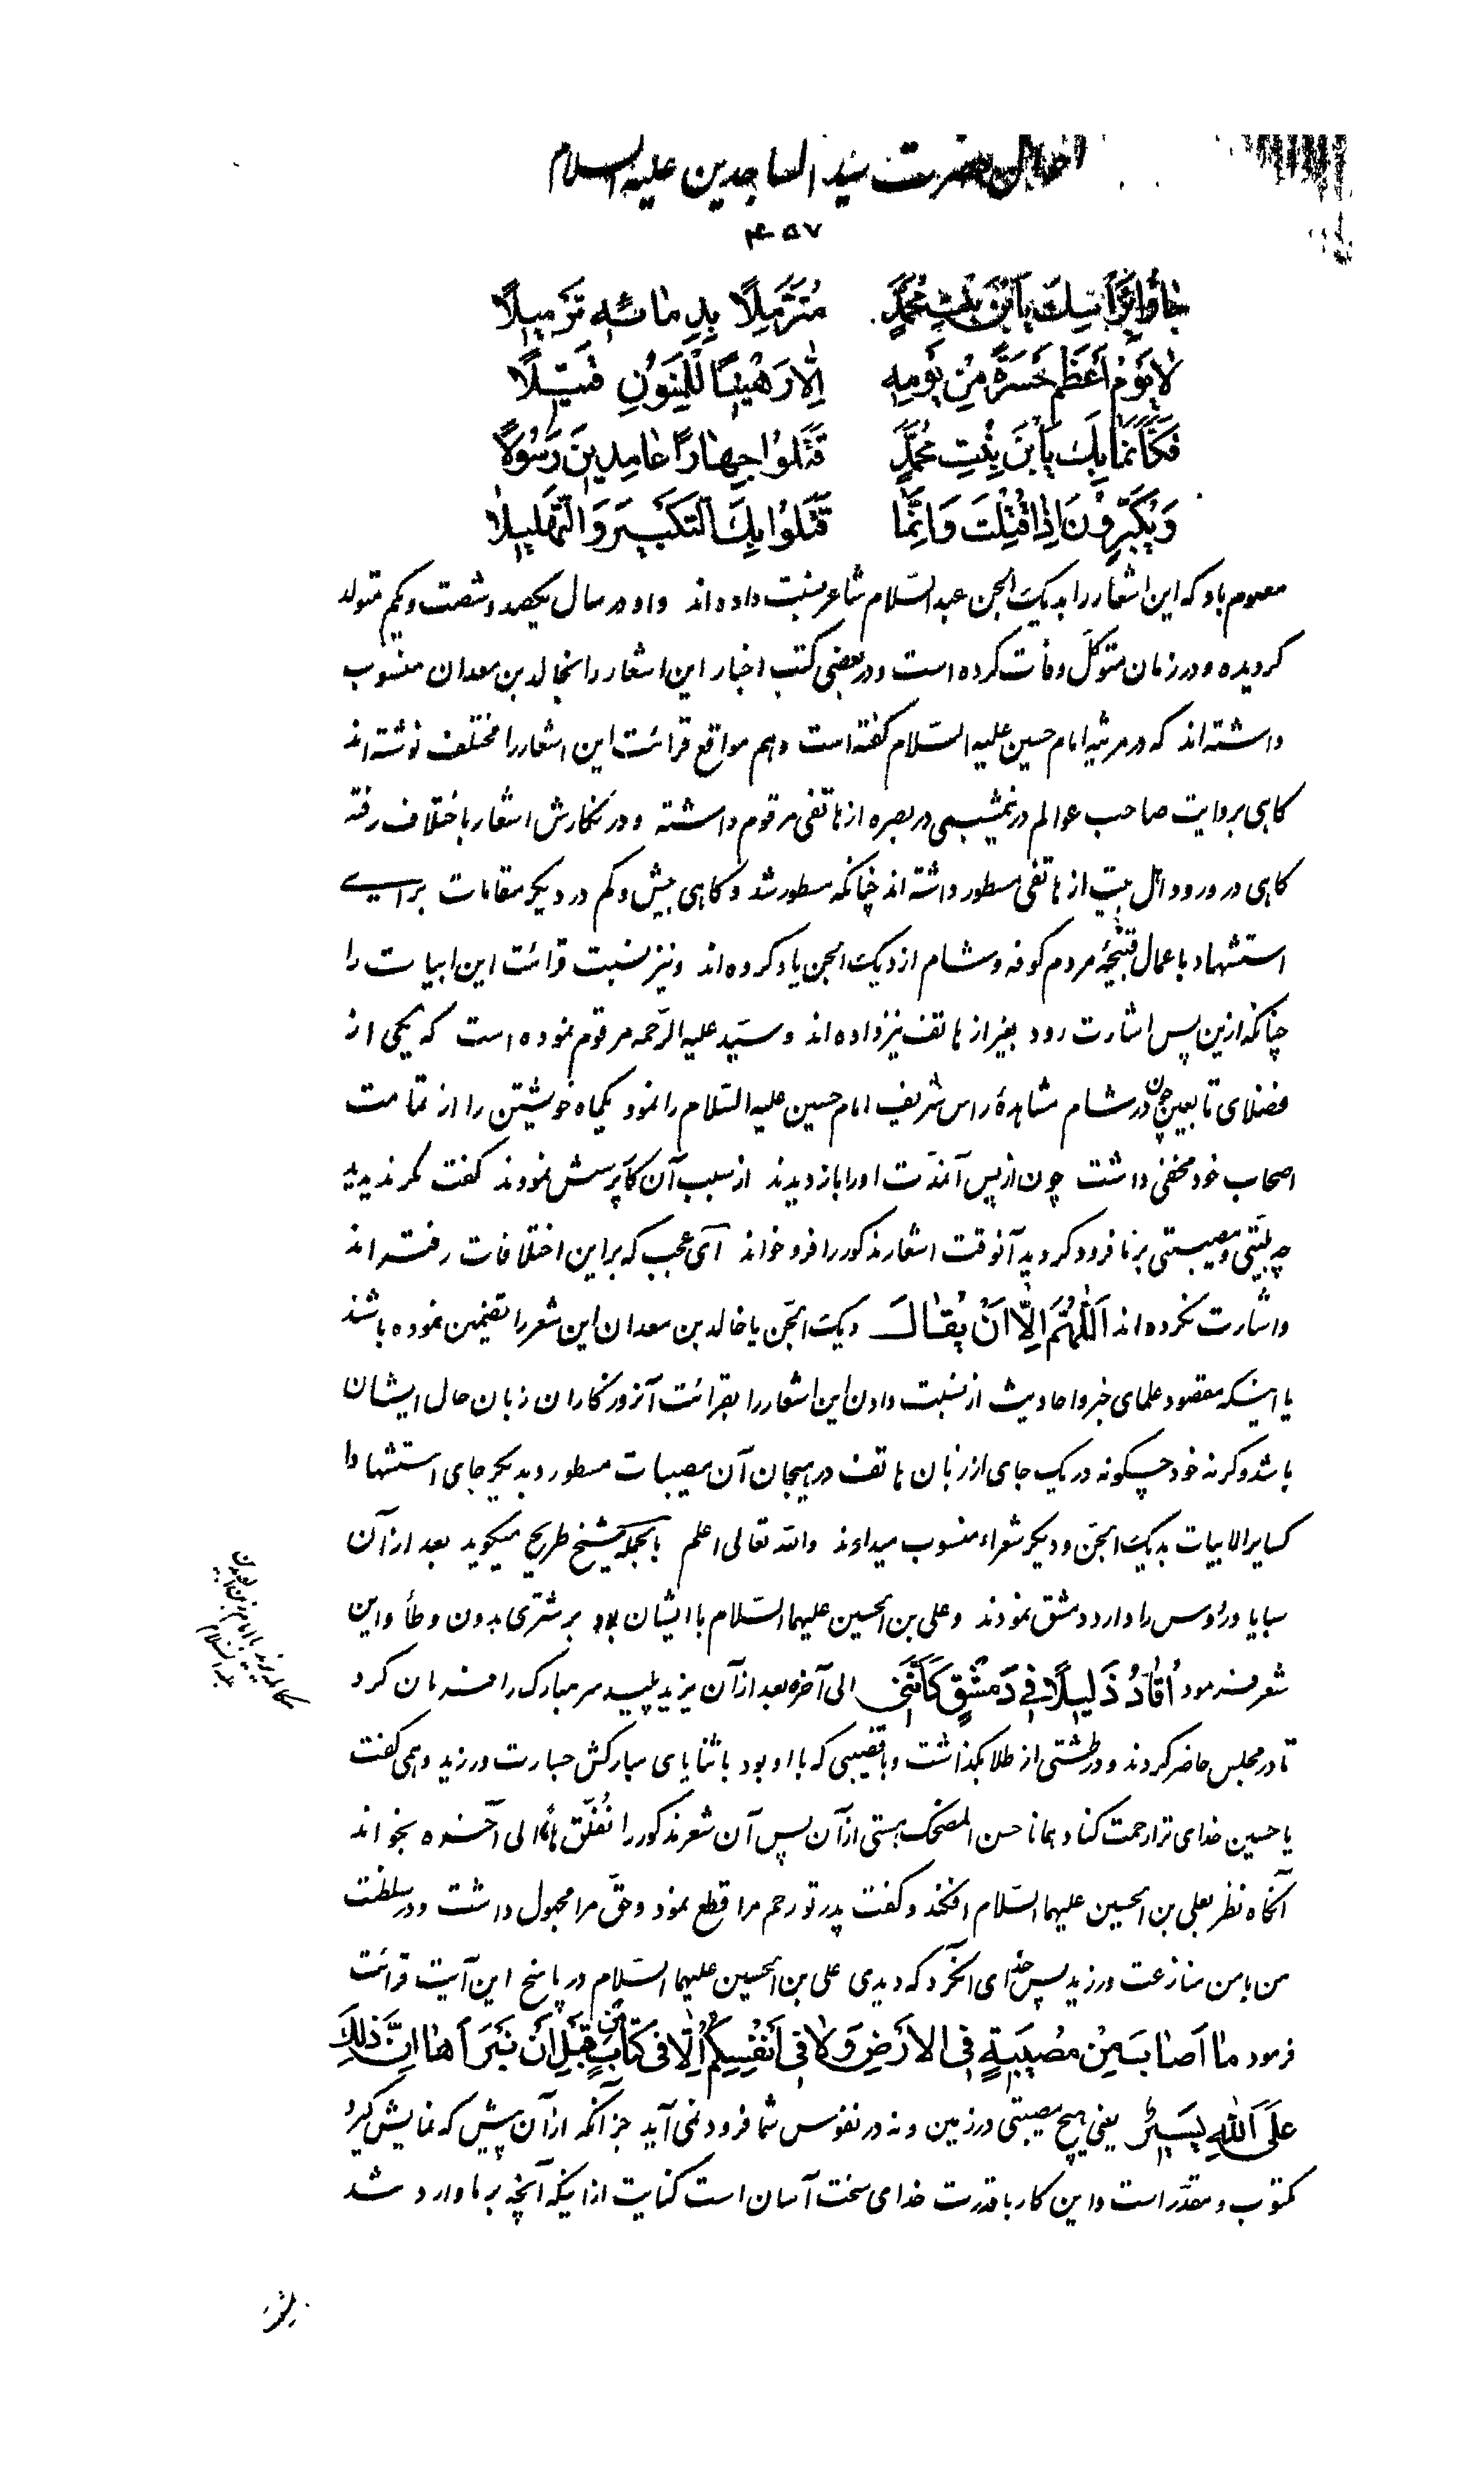 احوال حضرت سید الساجدین علیه السلام
۴۵۷
جاؤا بِرَأسِكَ یَابْنَ بِنْتِ مُحَمَّدٍ مُتَزَمِّلًا بِدِمائِهِ تَزْمیلًا
لا یَوْمُ أَعْظَمُ حَسْرَةً مِنْ یَوْمِهِ إِلّا رَهْینًا لِلْمَنُونِ قَتیلًا
فَكَأَنَّما بِكَ یَابْنَ بِنْتِ مُحَمَّدٍ قَتَلُوا جِهارًا عامِدینَ رَسُولًا
وَیُكَبِّرُونَ إِذا قُتِلْتَ وَإِنَّما قَتَلُوا بِكَ التَّكْبیرَ وَالتَّهْلیلا
معلوم باد که این اشعار را بدیک الجن عبد السّلام شاعر نسبت داده‌اند و او در سال یکصد و شصت و یکم متولد
گردیده و در زمان متوکّل وفات کرده است و در بعضی کتب اخبار این اشعار را بخالد بن معدان منسوب
داشته‌اند که در مرثیه امام حسین علیه السّلام گفته است و هم مواقع قرائت این اشعار را مختلف نوشته‌اند
گاهی بروایت صاحب عوالم در نیمشبی در بصره از هاتفی مرقوم داشته و در نگارش اشعار باختلاف رفته
گاهی در ورود اهل بیت از هاتفی مسطور داشته‌اند چنانکه مسطور شد و گاهی بیش و کم در دیگر مقامات برای
استشهاد باعمال قبیحهٔ مردم کوفه و شام از دیک الجن یاد کرده‌اند و نیز نسبت قرائت این ابیات را
چنانکه ازین پس اشارت رود بغیر از هاتف نیز داده‌اند و سیّد علیه الرّحمه مرقوم نموده است که یکی از
فضلای تابعین چون در شام مشاهدهٔ راس شریف امام حسین علیه السّلام را نمود یکماه خویشتن را از تمامت
اصحاب خود مخفی داشت چون از پس آنمدّت او را باز دیدند از سبب آن کار پرسش نمودند گفت مگر ندیدید
چه بلیّتی و مصیبتی بر ما فرود گردید آنوقت اشعار مذکور را فرو خواند ای عجب که بر این اختلافات رفته‌اند
و اشارت نکرده‌اند اَللّهُمَّ اِلّا اَنْ یُقالَ دیک الجّن یا خالد بن معدان این شعر را تضمین نموده باشند
یا اینکه مقصود علمای خبر و احادیث از نسبت دادن این اشعار را بقرائت آنروزگاران زبان حال ایشان
باشد و گر نه خود چگونه در یک جای از زبان هاتف در هیجان آن مصیبات مسطور و بدیگر جای استشهادا
کسایر الابیات بدیک الجّن و دیگر شعراء منسوب میدارند والله تعالی اعلم بالجمله شیخ طریح میگوید بعد از آن
سبایا و رؤس را وارد دمشق نمودند و علی بن الحسین علیهما السّلام با ایشان بود بر شتری بدون وطأ و این
شعر فرمود أُقادُ ذَلیلًا فی دَمِشْقٍ كَأَنَّنی الی آخره بعد از آن یزید پلید سر مبارک را فرمان کرد
تا در مجلس حاضر کردند و در طشتی از طلا بگذاشت و با قضیبی که با او بود با ثنایای مبارکش جسارت ورزید و همی گفت
یا حسین خدای ترا رحمت کناد همانا حسن المضحک هستی از آن پس آن شعر مذکور را نُفَلِّقُ هاما الی آخره بخواند
آنگاه نظر بعلی بن الحسین علیهما السّلام افکند و گفت پدر تو رحم مرا قطع نمود و حقّ مرا مجهول داشت و در سلطنت
من با من منازعت ورزید پس خدای آنکرد که دیدی علی بن الحسین علیهما السّلام در پاسخ این آیت قرائت
فرمود ما اَصابَ مِنْ مُصیبَةٍ فِی الاَرْضِ وَلا فی أَنْفُسِكُمْ اِلّا فی كِتابٍ مِنْ قَبْلِ أَنْ نَبْرَأَها اِنَّ ذلِكَ
عَلَی اللهِ یَسیرٌ یعنی هیچ مصیبتی در زمین و نه در نفوس شما فرود نمی‌آید جز آنکه از آن پیش که نمایش گیرد
مکتوب و مقدّر است و این کار با قدرت خدای سخت آسان است کنایت از اینکه آنچه بر ما وارد شد
علیه السّلام